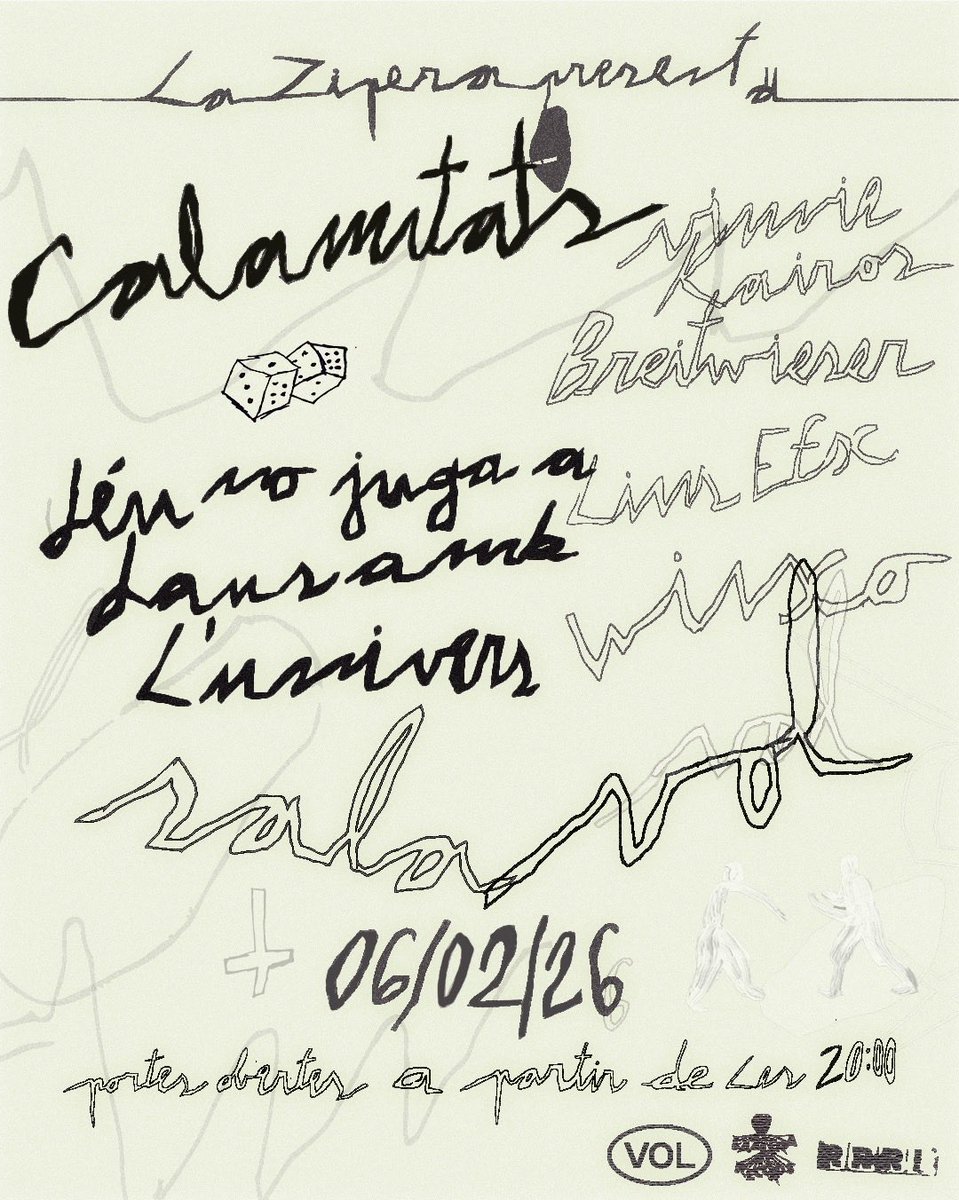 La Zipera presenta
Calamitats
Kairos
Breitwieser
Déu no juga a
daus amb
L'univers
sala vol
06/02/26
portes obertes a partir de les 20:00
VOL